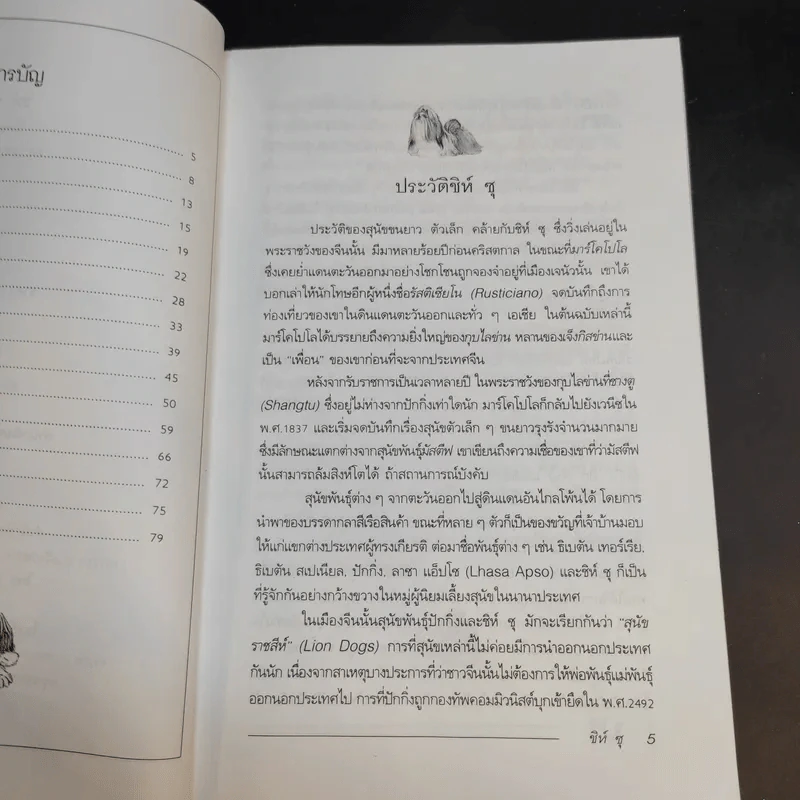 ารบัญ
5
8
13
15
19
22
28
33
39
45
50
59
66
72
75
79
ประวัติชิห์ ซุ
ประวัติของสุนัขขนยาว ตัวเล็ก คล้ายกับชิห์ ซุ ซึ่งวิ่งเล่นอยู่ใน
พระราชวังของจีนนั้น มีมาหลายร้อยปีก่อนคริสตกาล ในขณะที่มาร์โคโปโล
ซึ่งเคยย่ำแดนตะวันออกมาอย่างโชกโชนถูกจองจำอยู่ที่เมืองเจนัวนั้น เขาได้
บอกเล่าให้นักโทษอีกผู้หนึ่งชื่อรัสติเซียโน (Rusticiano) จดบันทึกถึงการ
ท่องเที่ยวของเขาในดินแดนตะวันออกและทั่ว ๆ เอเชีย ในต้นฉบับเหล่านี้
มาร์โคโปโลได้บรรยายถึงความยิ่งใหญ่ของกุบไลข่าน หลานของเจ็งกิสข่านและ
เป็น "เพื่อน" ของเขาก่อนที่จะจากประเทศจีน
หลังจากรับราชการเป็นเวลาหลายปี ในพระราชวังของกุบไลข่านที่ชางตู
(Shangtu) ซึ่งอยู่ไม่ห่างจากปักกิ่งเท่าใดนัก มาร์โคโปโลก็กลับไปยังเวนิซใน
พ.ศ.1837 และเริ่มจดบันทึกเรื่องสุนัขตัวเล็ก ๆ ขนยาวรุงรังจำนวนมากมาย
ซึ่งมีลักษณะแตกต่างจากสุนัขพันธุ์มัสตีฟ เขาเขียนถึงความเชื่อของเขาที่ว่ามัสตีฟ
นั้นสามารถล้มสิงห์โตได้ ถ้าสถานการณ์บังคับ
สุนัขพันธุ์ต่าง ๆ จากตะวันออกไปสู่ดินแดนอันไกลโพ้นได้ โดยการ
นำพาของบรรดากลาสีเรือสินค้า ขณะที่หลาย ๆ ตัวก็เป็นของขวัญที่เจ้าบ้านมอบ
ให้แก่แขกต่างประเทศผู้ทรงเกียรติ ต่อมาชื่อพันธุ์ต่าง ๆ เช่น ธิเบตัน เทอร์เรีย,
ธิเบตัน สเปเนียล, ปักกิ่ง, ลาซา แอ็ปโซ (Lhasa Apso) และชิห์ ซุ ก็เป็น
ที่รู้จักกันอย่างกว้างขวางในหมู่ผู้นิยมเลี้ยงสุนัขในนานาประเทศ
ในเมืองจีนนั้นสุนัขพันธุ์ปักกิ่งและชิห์ ซุ มักจะเรียกกันว่า "สุนัข
ราชสีห์" (Lion Dogs) การที่สุนัขเหล่านี้ไม่ค่อยมีการนำออกนอกประเทศ
กันนัก เนื่องจากสาเหตุบางประการที่ว่าชาวจีนนั้นไม่ต้องการให้พ่อพันธุ์แม่พันธุ์
ออกนอกประเทศไป การที่ปักกิ่งถูกกองทัพคอมมิวนิสต์บุกเข้ายึดใน พ.ศ.2492
ชิห์ ซุ 5